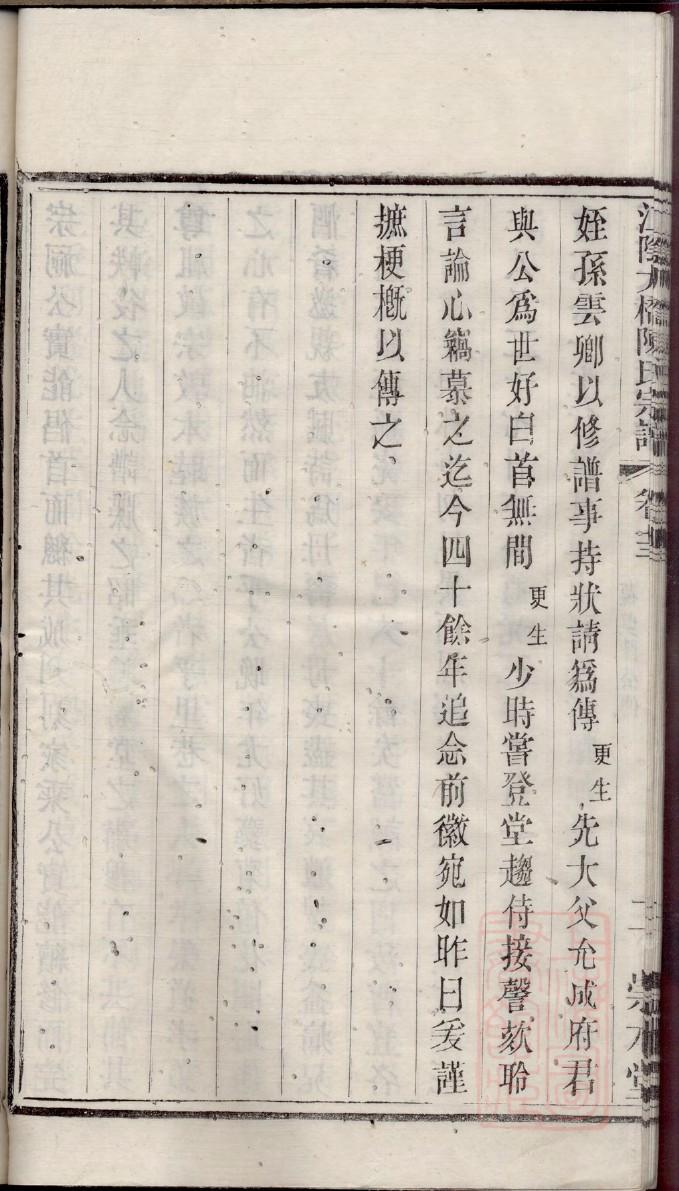 姪孫雲卿以修譜事持狀請爲傳更生先大父允成府君
與公爲世好白首無間更生少時嘗登堂趨侍接謦欬聆
言論心竊慕之迄今四十餘年追念前徽宛如昨日爰謹
摭梗槪以傳之、